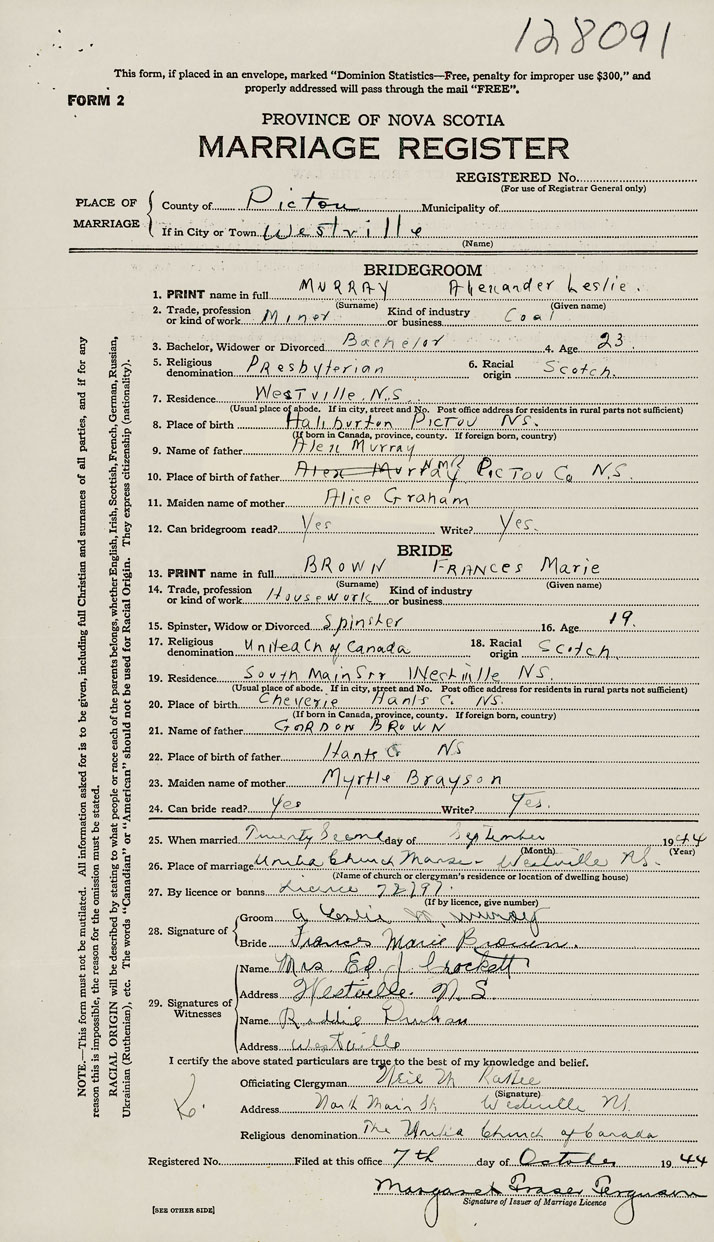 128091
This form, if placed in an envelope, marked "Dominion Statistics—Free, penalty for improper use $300," and
properly addressed will pass through the mail "FREE".
FORM 2
PROVINCE OF NOVA SCOTIA
MARRIAGE REGISTER
REGISTERED No.
(For use of Registrar General only)
PLACE OF MARRIAGE
County of Pictou Municipality of
If in City or Town Westville
(Name)
BRIDEGROOM
1. PRINT name in full MURRAY Alexander Leslie.
(Surname) (Given name)
2. Trade, profession or kind of work Miner Kind of industry or business Coal
3. Bachelor, Widower or Divorced Bachelor 4. Age 23.
5. Religious denomination Presbyterian 6. Racial origin Scotch.
7. Residence Westville N.S.
(Usual place of abode. If in city, street and No. Post office address for residents in rural parts not sufficient)
8. Place of birth Haliburton Pictou NS.
(If born in Canada, province, county. If foreign born, country)
9. Name of father Alex Murray
10. Place of birth of father Alex Murray Pictou Co N.S.
11. Maiden name of mother Alice Graham
12. Can bridegroom read? Yes Write? Yes.
BRIDE
13. PRINT name in full BROWN FRANCES Marie
(Surname) (Given name)
14. Trade, profession or kind of work Housework Kind of industry or business
15. Spinster, Widow or Divorced Spinster 16. Age 19.
17. Religious denomination United Ch of Canada 18. Racial origin Scotch.
19. Residence South Main Str Westville NS.
(Usual place of abode. If in city, street and No. Post office address for residents in rural parts not sufficient)
20. Place of birth Cheverie Hants C. NS.
(If born in Canada, province, county. If foreign born, country)
21. Name of father GORDON BROWN
22. Place of birth of father Hants Co NS
23. Maiden name of mother Myrtle Brayson
24. Can bride read? Yes Write? Yes.
25. When married Twenty Second day of September 1944
(Month) (Year)
26. Place of marriage United Church Manse - Westville NS.
(Name of church or clergyman's residence or location of dwelling house)
27. By licence or banns Licence 72197.
(If by licence, give number)
28. Signature of
Groom A Leslie Murray
Bride Frances Marie Brown.
29. Signatures of Witnesses
Name Mrs Ed. J. Crockett
Address Westville. N.S
Name Roddie
Address Westville
I certify the above stated particulars are true to the best of my knowledge and belief.
Officiating Clergyman Neil M
(Signature)
Address North Main St Westville NS.
Religious denomination The United Church of Canada
Registered No. Filed at this office 7th day of October 1944
Margaret Fraser Ferguson
Signature of Issuer of Marriage Licence
[SEE OTHER SIDE]
NOTE.—This form must not be mutilated. All information asked for is to be given, including full Christian and surnames of all parties, and if for any
reason this is impossible, the reason for the omission must be stated.
RACIAL ORIGIN will be described by stating to what people or race each of the parents belongs, whether English, Irish, Scottish, French, German, Russian,
Ukrainian (Ruthenian), etc. The words "Canadian" or "American" should not be used for Racial Origin. They express citizenship (nationality).